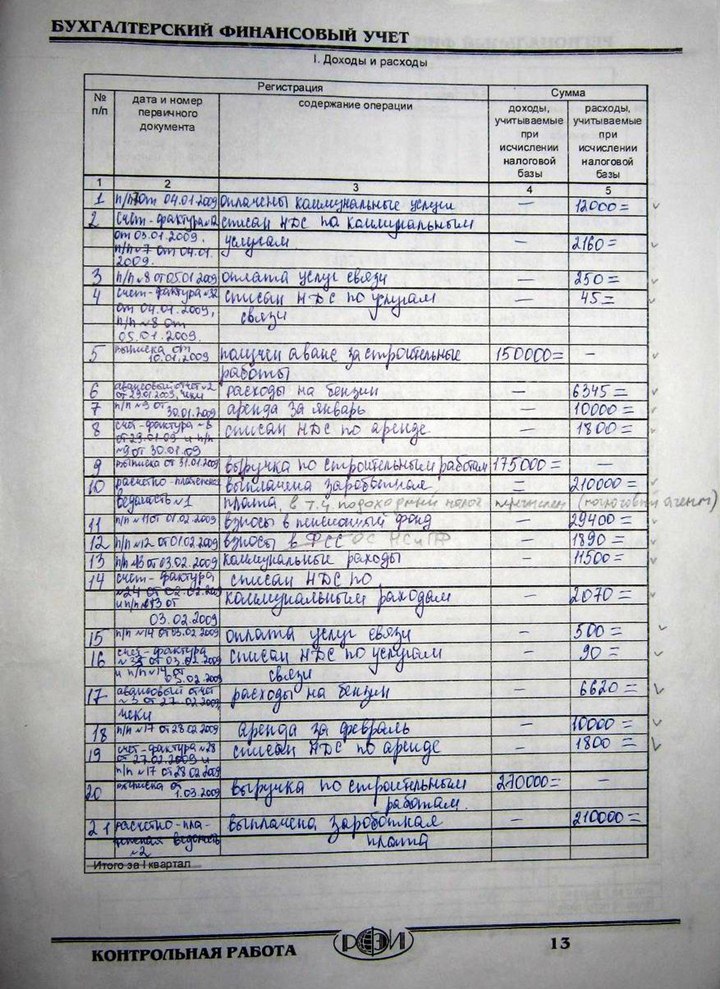 БУХГАЛТЕРСКИЙ ФИНАНСОВЫЙ УЧЕТ
I. Доходы и расходы
Регистрация Сумма
№ п/п дата и номер первичного документа содержание операции доходы, учитываемые при исчислении налоговой базы расходы, учитываемые при исчислении налоговой базы
1 2 3 4 5
1 п/п7от 04.01.2009 оплачены коммунальные услуги — 12000=
2 счет-фактура №2 списан НДС по коммунальным
от 03.01.2009, услугам — 2160=
п/п №7 от 04.01.
2009.
3 п/п №8 от 05.01.2009 оплата услуг связи — 250=
4 счет-фактура №32 списан НДС по услугам — 45=
от 04.01.2009, связи
п/п №8 от
05.01.2009.
5 выписка от получен аванс за строительные 150000= —
10.01.2009 работы
6 авансовый отчет №2 расходы на бензин — 6345=
от 29.01.2009, чеки
7 п/п №9 от аренда за январь — 10000=
30.01.2009
8 счет-фактура №8 списан НДС по аренде — 1800=
от 29.01.09 и п/п
№9 от 30.01.09
9 выписка от 31.01.2009 выручка по строительным работам 175000= —
10 расчетно-платежная выплачена зароботная = 210000=
ведомость №1 плата, в т.ч подоходный налог перечислен (налоговый агент)
11 п/п №11 от 01.02.2009 взносы в пенсионный фонд — 29400=
12 п/п №12 от 01.02.2009 взносы в ФСС ОС НС и ПФ — 1890=
13 п/п №13 от 03.02.2009 коммунальные расходы — 11500=
14 счет-фактура списан НДС по
№24 от 02.02.2009 коммунальным расходам — 2070=
и п/п №13 от
03.02.2009
15 п/п №14 от 05.02.2009 оплата услуг связи — 500=
16 счет-фактура списан НДС по услугам — 90=
№33 от 03.02.2009 связи
и п/п №14 от
05.02.2009
17 авансовый отчет расходы на бензин — 6620=
№3 от 27.02.2009
чеки
18 п/п №17 от 28.02.2009 аренда за февраль — 10000=
19 счет-фактура №28 списан НДС по аренде — 1800=
от 27.02.2009 и
п/п №17 от 28.02.2009
20 выписка от выручка по строительным 270000= —
1.03.2009 работам.
21 расчетно-пла- выплачена зароботная — 210000=
тежная ведомость плата
№2
Итого за I квартал
КОНТРОЛЬНАЯ РАБОТА РФЭИ 13